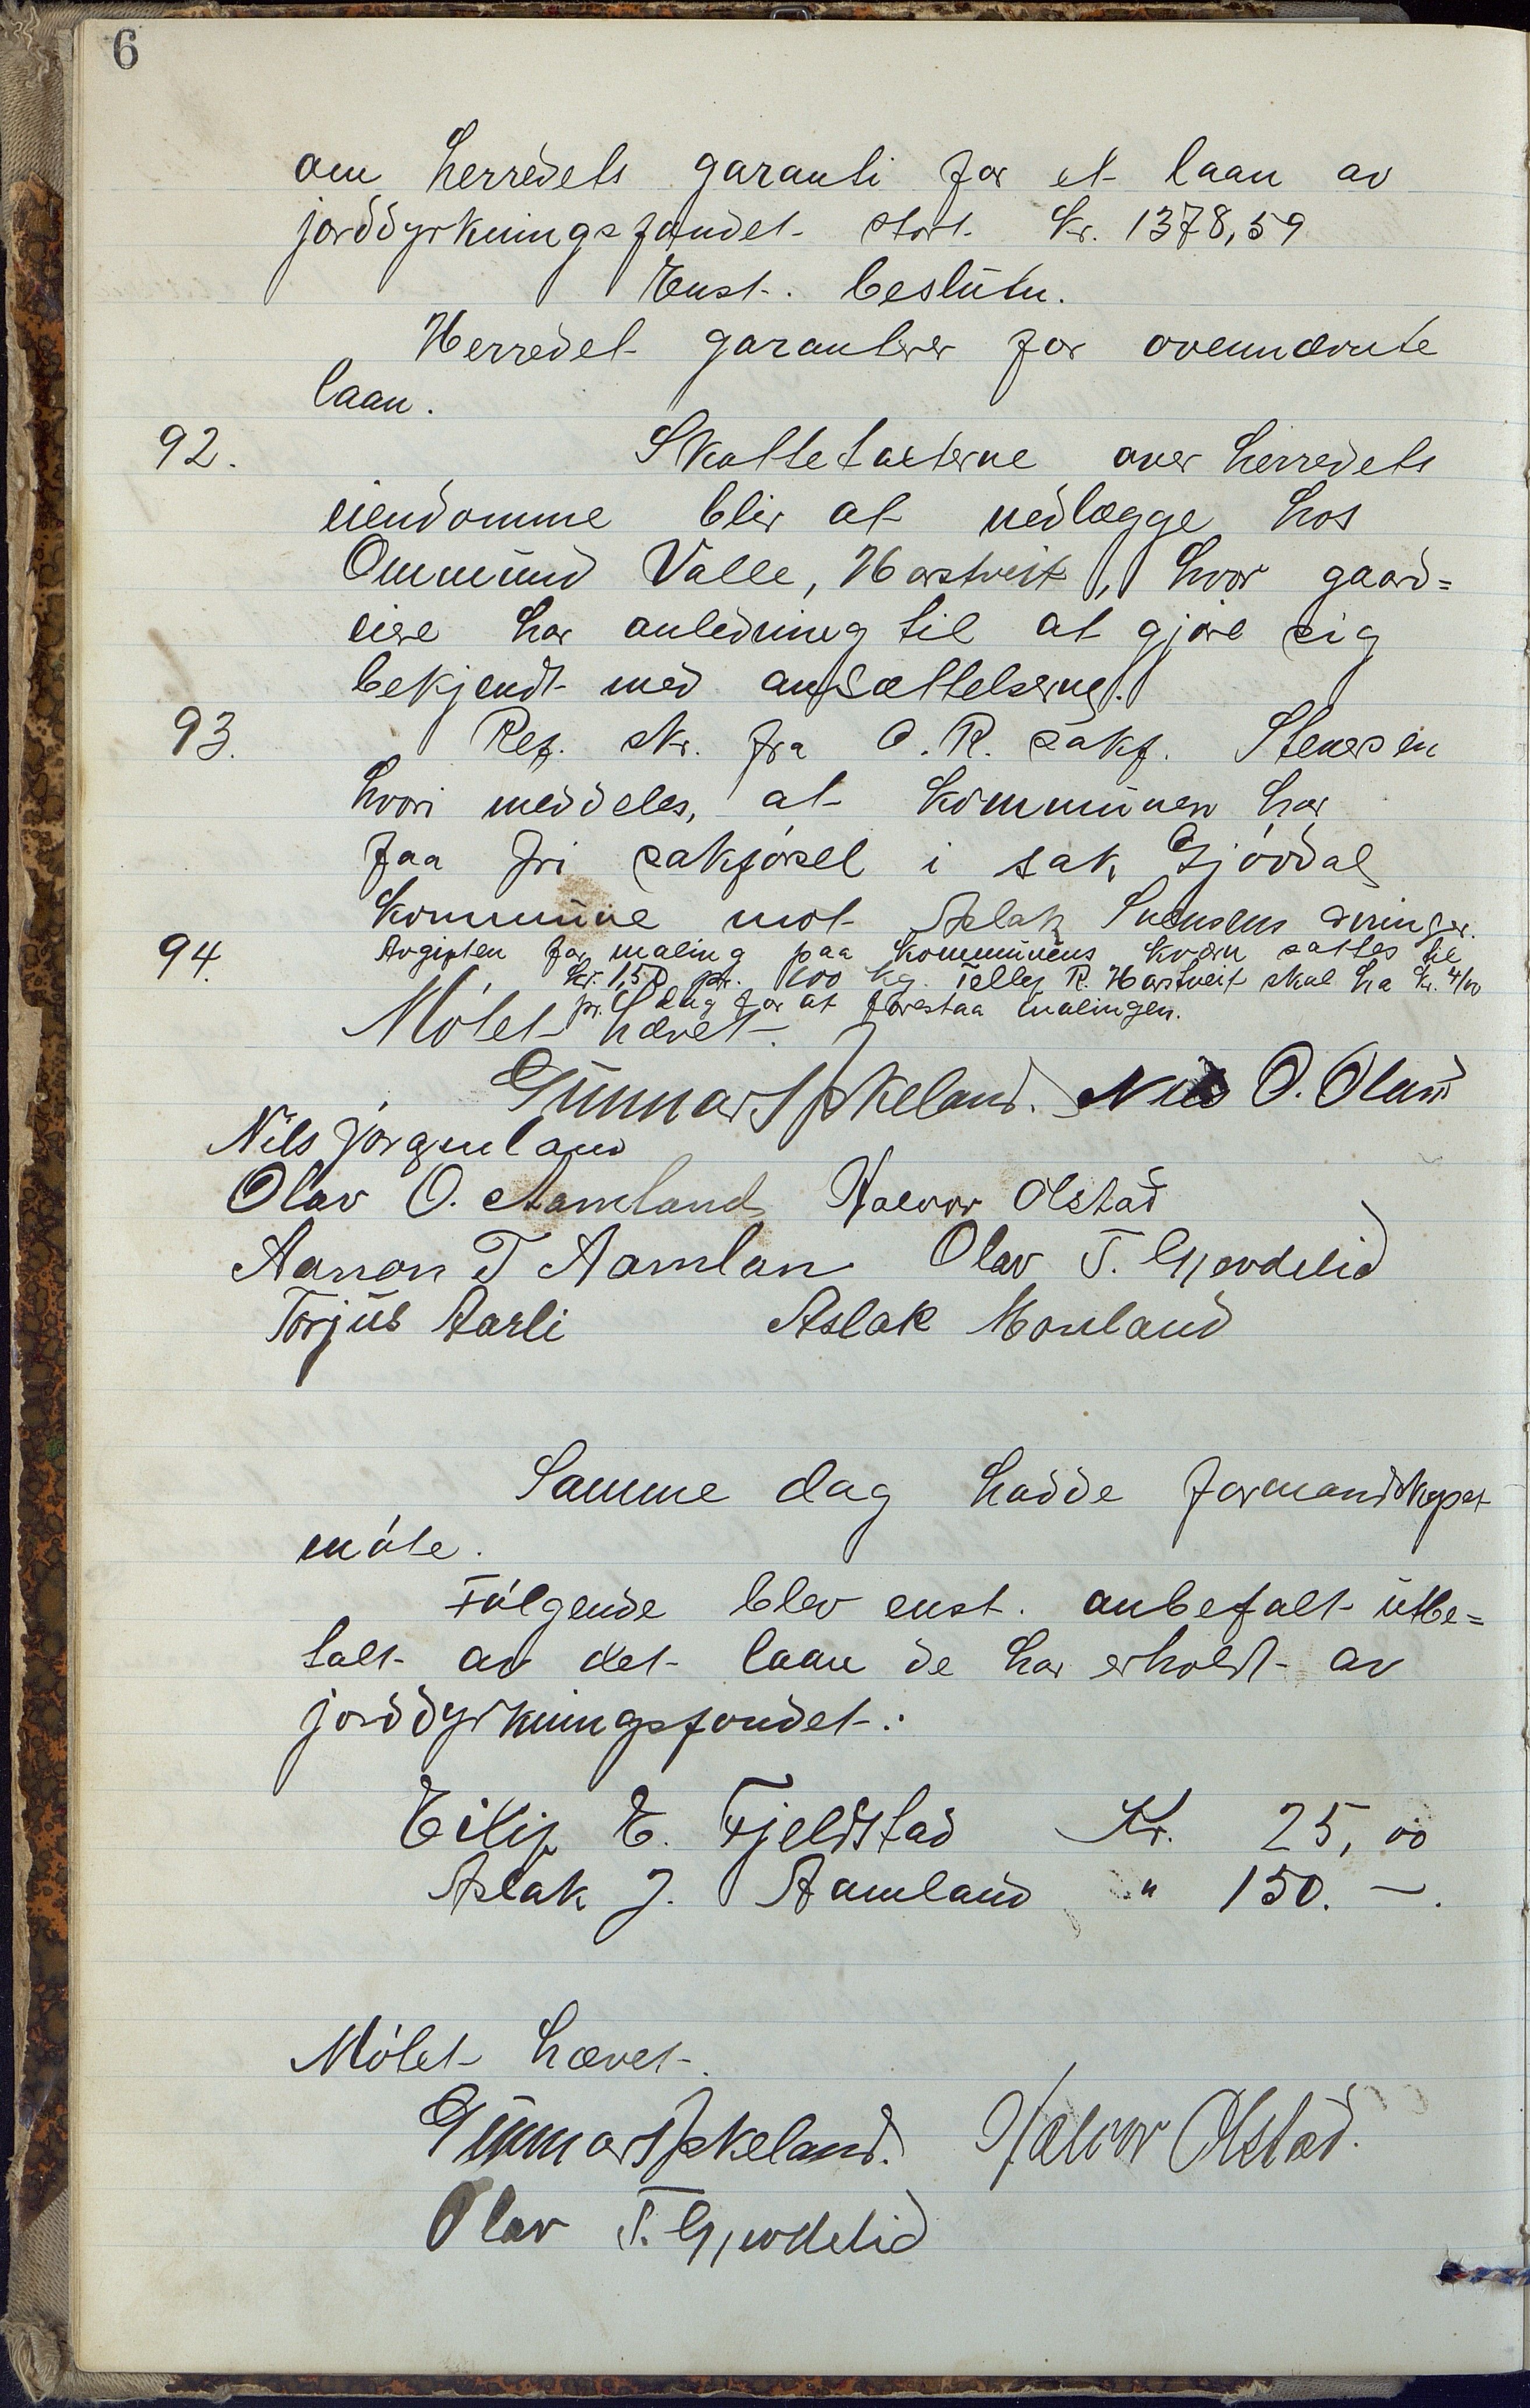 6
om herredets garanti for et laan av
jorddyrkningsfondet stort kr. 1378,59
Enst. beslutn.
Herredet garanterer for ovennævnte
laan.
92. Skattetaxterne over herredets
eiendomme blir at nedlægge hos
Ommund Valle, Harstveit, hvor gaard=
eiere har anledning til at gjøre sig
bekjendt med ansættelserne.
93. Ref. skr. fra O.R. sakf. Stenersen
hvori meddeles, at kommunen har
faa fri sakførsel i sak Gjøvdal
kommune mot Aslak Svensens arvinger.
94. Avgiften for maling paa kommunens kværn sattes til
kr. 1,50 pr. 100 kg. Tellef R. Harstveit skal ha kr. 4/00
pr. dag for at forestaa malingen.
Møtet hævet.
Gunnar Askeland. Nils O. Øland
Nils Jørgenland
Olav O. Aamland Halvor Ølstad
Aanon T Aamlan Olav T. Gjøvdelid
Torjus Aarli Aslak Mouland
Samme dag hadde formandskapet
møte.
Følgende blev enst. anbefalt utbe=
talt av det laan de har erholdt av
jorddyrkningsfondet:
Eilif E. Fjeldstad Kr. 25,00
Aslak J. Aamland " 150. —.
Møtet hævet.
Gunnar Askeland. Halvor Ølstad.
Olav T. Gjøvdelid